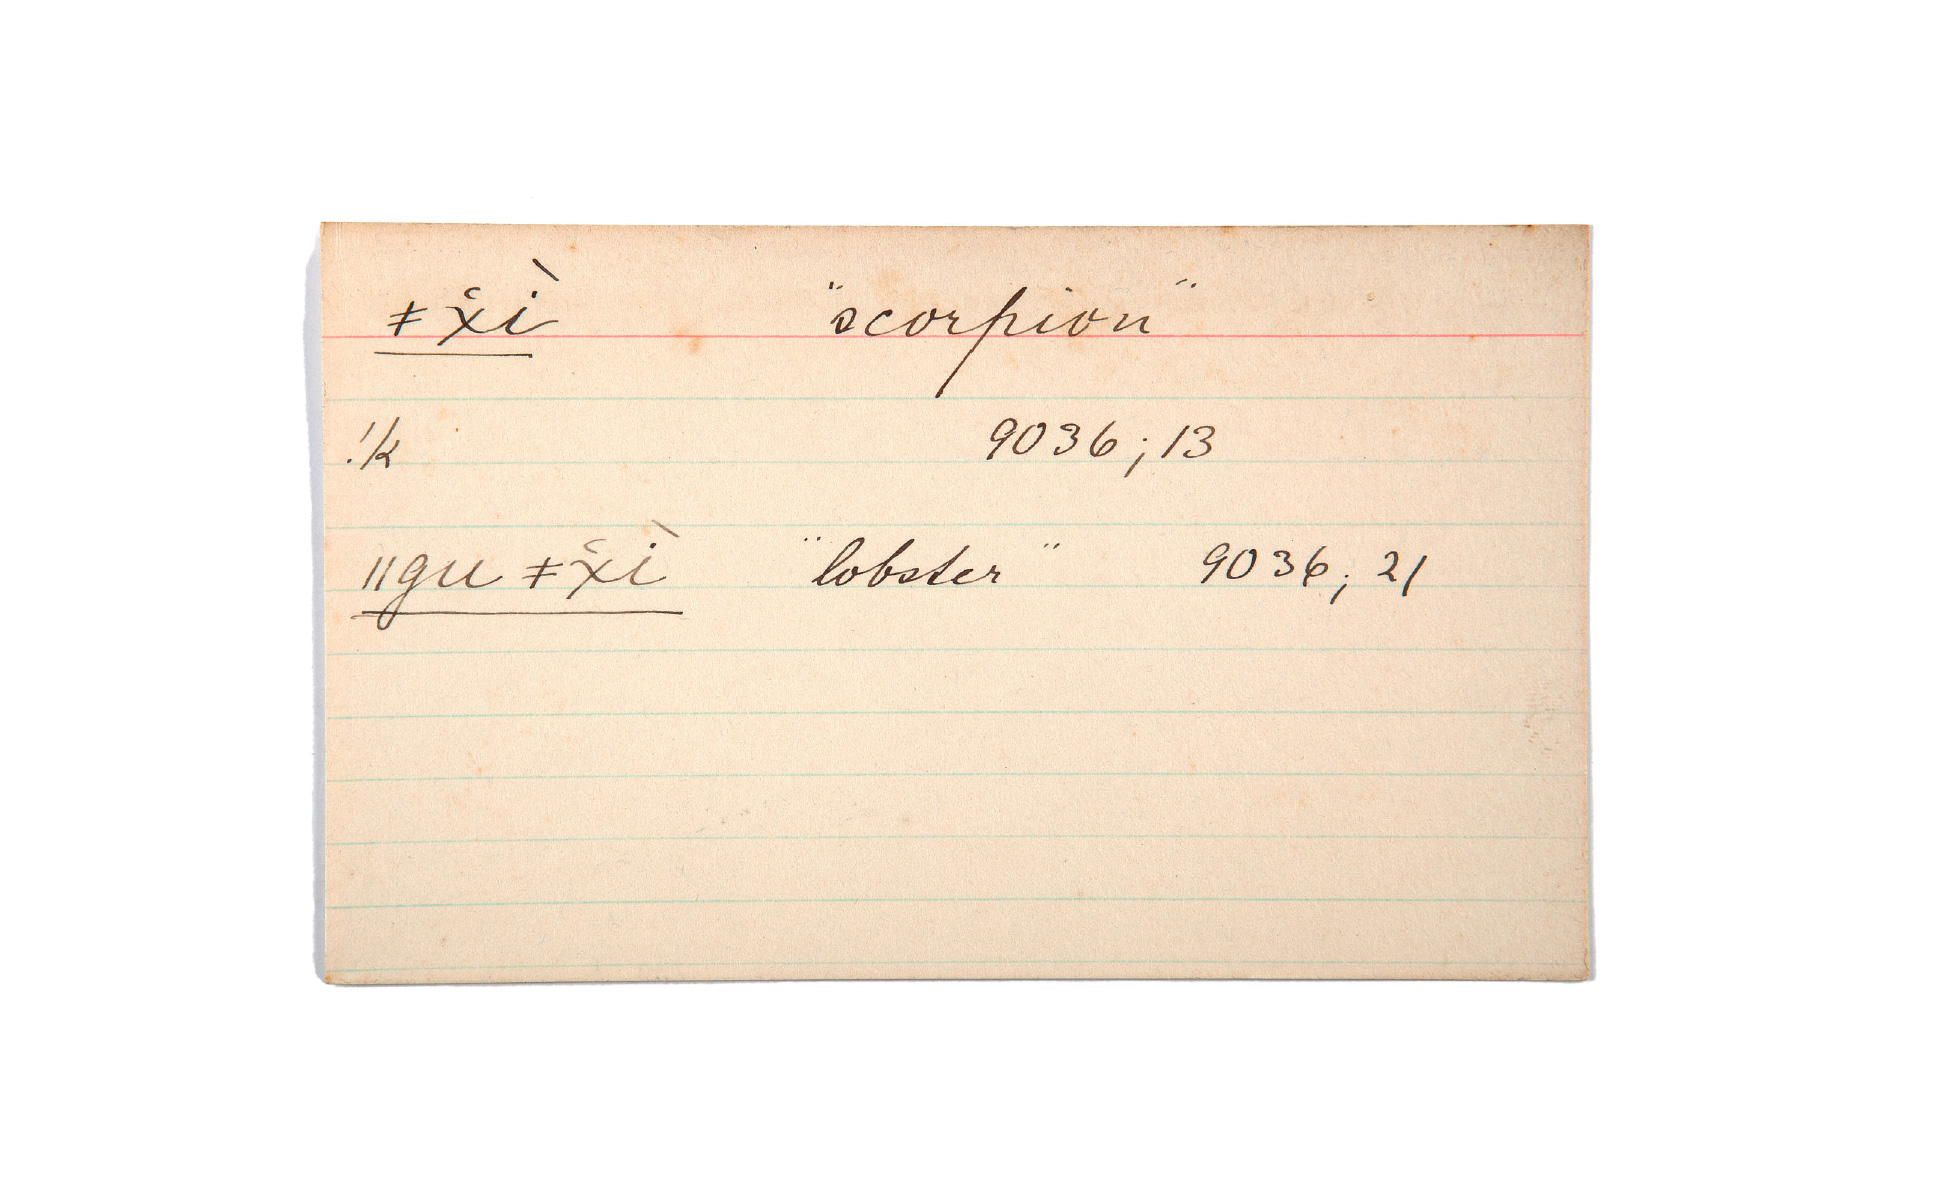 ǂx̆ì "scorpion"
!k 9036; 13
ǁgu ǂx̆ì "lobster" 9036; 21